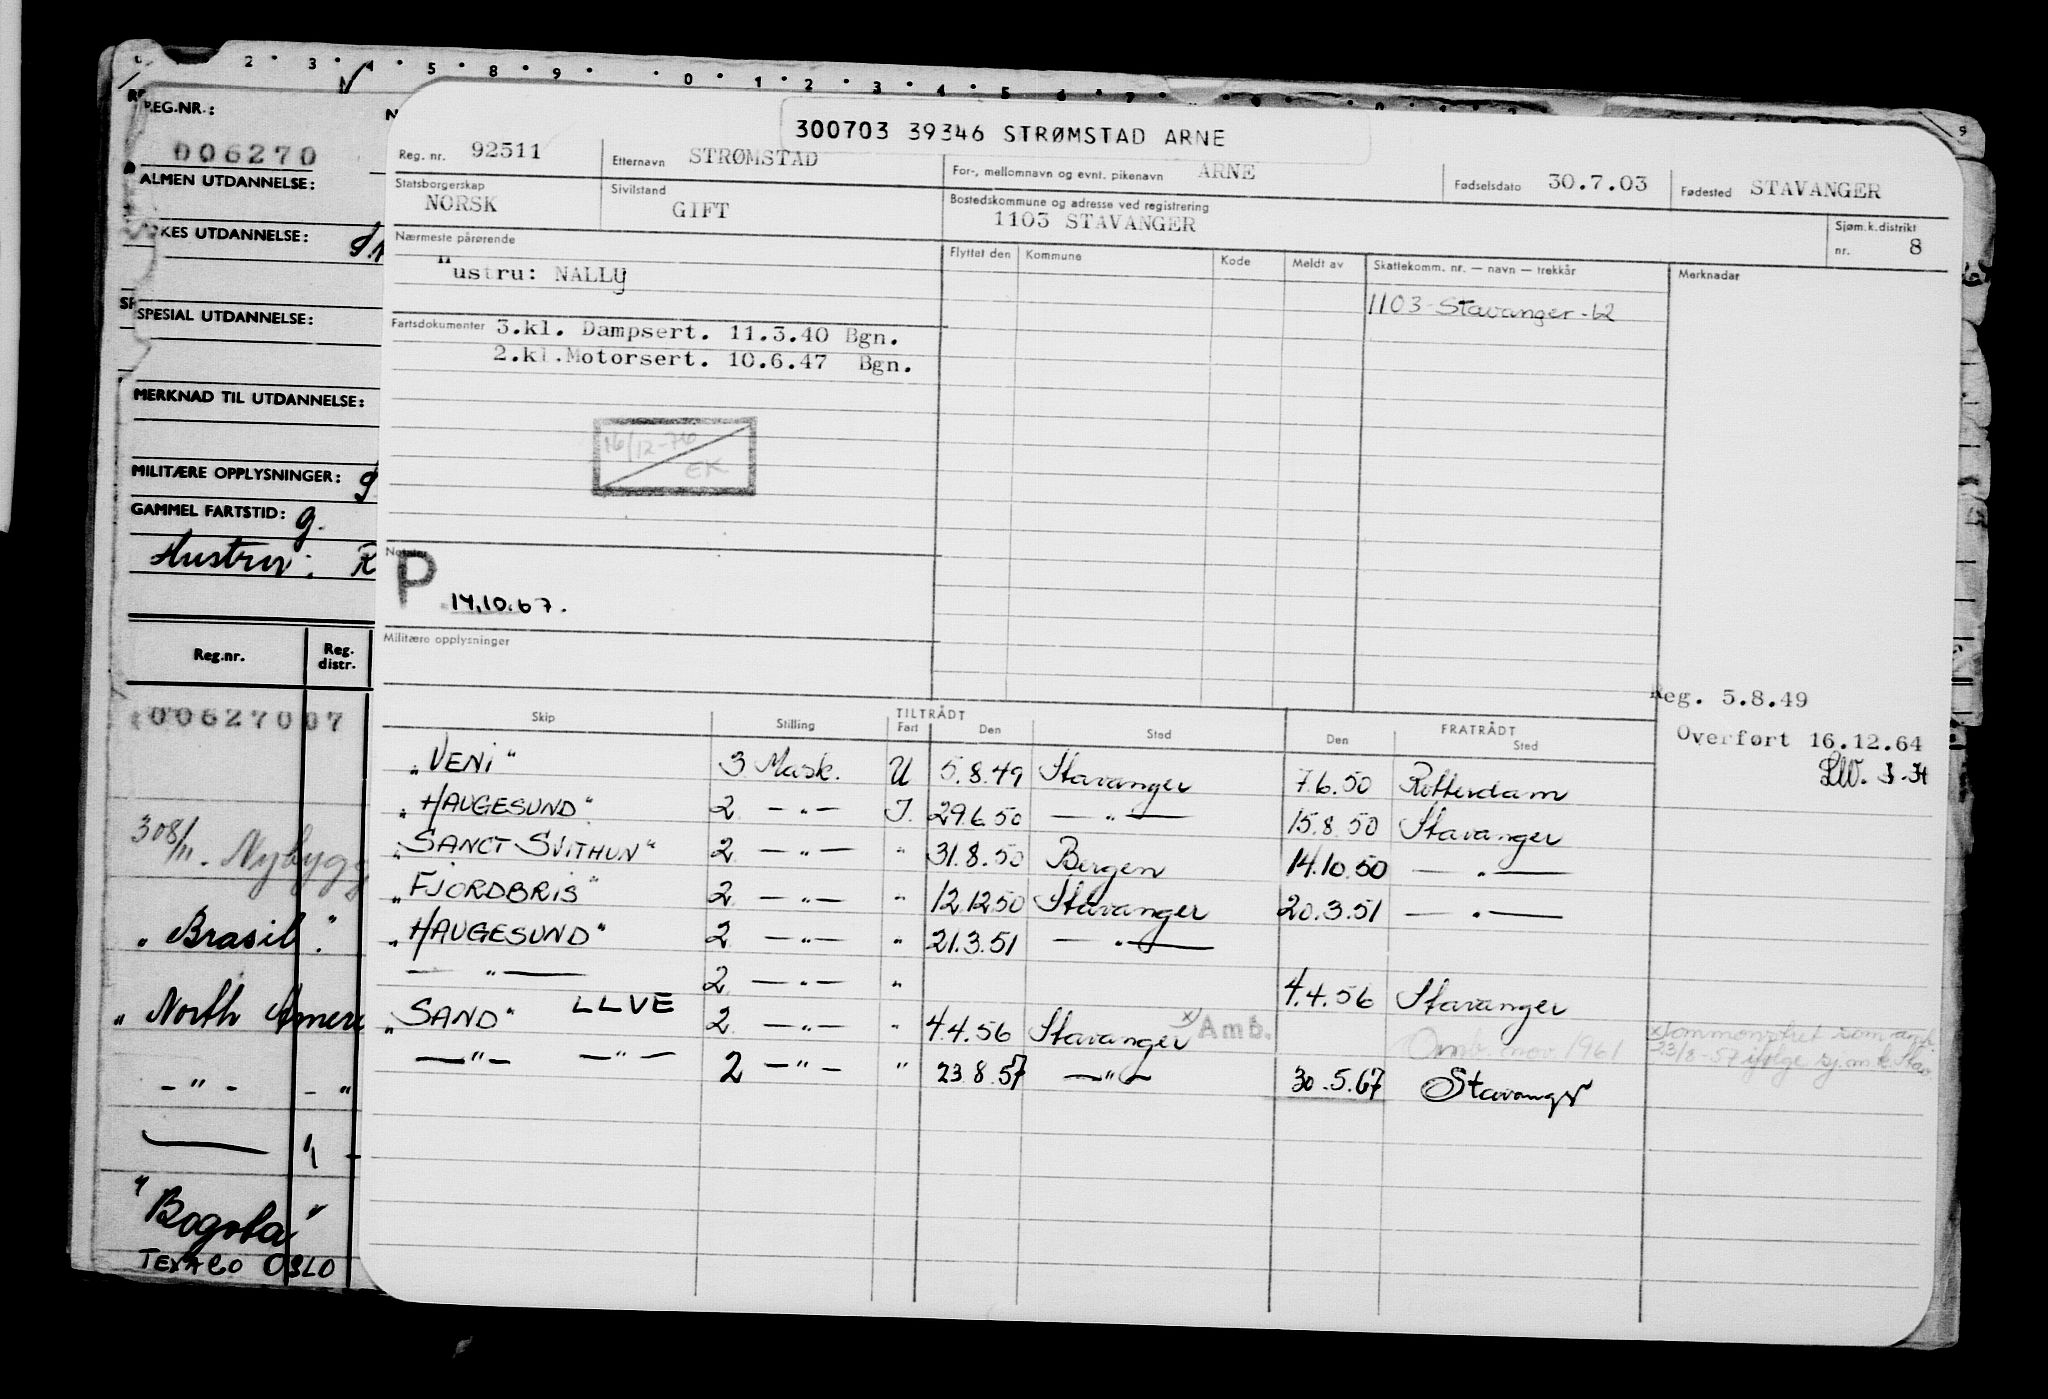 300703 39346 STRØMSTAD ARNE
Reg. nr. 92511 Etternavn STRØMSTAD For-, mellomnavn og evnt. pikenavn ARNE Fødselsdato 30.7.03 Fødested STAVANGER
Statsborgerskap NORSK Sivilstand GIFT Bostedskommune og adresse ved registrering 1103 STAVANGER Sjøm.k.distrikt nr. 8
Nærmeste pårørende Flyttet den Kommune Kode Meldt av Skattekomm. nr. — navn — trekkår Merknader
Hustru: NALLY
1103-Stavanger-62
Fartsdokumenter 3.kl. Dampsert. 11.3.40 Bgn.
2.kl.Motorsert. 10.6.47 Bgn.
16/12-76
EK
Notater
P 14.10.67.
Militære opplysninger
Reg. 5.8.49
Overført 16.12.64
TILTRÅDT FRATRÅDT
Skip Stilling Fart Den Sted Den Sted
"VENI" 3 Mask. U 5.8.49 Stavanger 7.6.50 Rotterdam
"HAUGESUND" 2 — " — I. 29.6.50 — " — 15.8.50 Stavanger
"SANCT SVITHUN" 2 — " — " 31.8.50 Bergen 14.10.50 — " —
"FJORDBRIS" 2 — " — " 12.12.50 Stavanger 20.3.51 — " —
"HAUGESUND" 2 — " — " 21.3.51 — " —
— " — 2 — " — " 4.4.56 Stavanger
"SAND" LLVE 2 — " — " 4.4.56 Stavanger x) Amb.
Omb. nov. 1961
— " — — " — 2 — " — " 23.8.57 — " — 30.5.67 Stavanger
REG.NR.:
006270
ALMEN UTDANNELSE:
KES UTDANNELSE:
SPESIAL UTDANNELSE:
MERKNAD TIL UTDANNELSE:
MILITÆRE OPPLYSNINGER:
GAMMEL FARTSTID: g.
Hustru:
Reg.nr. Reg. distr.
00627007
308/11. Nybygg
"Brasil".
"North Amer
— " — — "
— "
"Bogota"
TEXACO OSLO